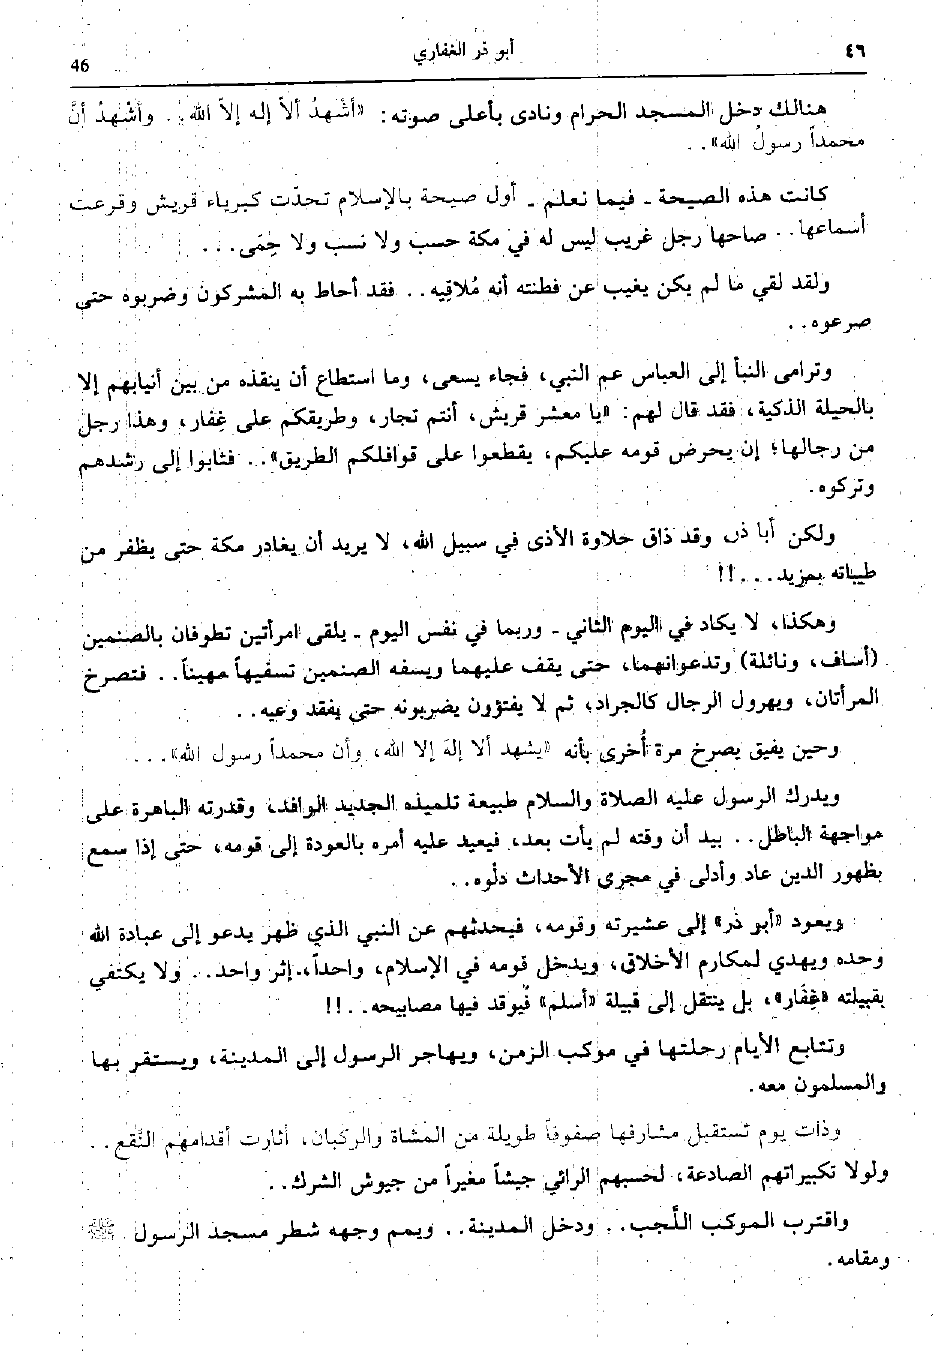 ٤٦
أبو ذر الغفاري
46
هنالك دخل المسجد الحرام ونادى بأعلى صوته: «أشْهدُ ألاّ إله إلاّ الله.. وأشْهدُ أنَّ
محمداً رسولُ الله»..
كانت هذه الصيحة ـ فيما نعلم ـ أول صيحة بالإسلام تحدّت كبرياء قريش وقرعت
أسماعها.. صاحها رجل غريب ليس له في مكة حسب ولا نسب ولا حِمًى...
ولقد لقي ما لم يكن يغيب عن فطنته أنه مُلاقِيه.. فقد أحاط به المشركون وضربوه حتى
صرعوه..
وترامى النبأ إلى العباس عم النبي، فجاء يسعى، وما استطاع أن ينقذه من بين أنيابهم إلا
بالحيلة الذكية، فقد قال لهم: «يا معشر قريش، أنتم تجار، وطريقكم على غِفار، وهذا رجل
من رجالها؛ إن يحرض قومه عليكم، يقطعوا على قوافلكم الطريق».. فثابوا إلى رشدهم
وتركوه.
ولكن أبا ذر، وقد ذاق حلاوة الأذى في سبيل الله، لا يريد أن يغادر مكة حتى يظفر من
طيباته بمزيد...!!
وهكذا، لا يكاد في اليوم الثاني ـ وربما في نفس اليوم ـ يلقى امرأتين تطوفان بالصنمين
(أساف، ونائلة) وتدعوانهما، حتى يقف عليهما ويسفه الصنمين تسفيهاً مهيناً.. فتصرخ
المرأتان، ويهرول الرجال كالجراد، ثم لا يفتؤون يضربونه حتى يفقد وعيه..
وحين يفيق يصرخ مرة أُخرى بأنه «يشهد ألا إله إلا الله، وأن محمداً رسول الله»...
ويدرك الرسول عليه الصلاة والسلام طبيعة تلميذه الجديد الوافد، وقدرته الباهرة على
مواجهة الباطل.. بيد أن وقته لم يأت بعد، فيعيد عليه أمره بالعودة إلى قومه، حتى إذا سمع
بظهور الدين عاد وأدلى في مجرى الأحداث دلْوه..
ويعود «أبو ذر» إلى عشيرته وقومه، فيحدثهم عن النبي الذي ظهر يدعو إلى عبادة الله
وحده ويهدي لمكارم الأخلاق، ويدخل قومه في الإسلام، واحداً، إثر واحد.. ولا يكتفي
بقبيلته «غِفَار»، بل ينتقل إلى قبيلة «أسلم» فيُوقد فيها مصابيحه..!!
وتتابع الأيام رحلتها في موكب الزمن، ويهاجر الرسول إلى المدينة، ويستقر بها
والمسلمون معه.
وذات يوم تستقبل مشارفها صفوفاً طويلة من المشاة والركبان، أثارت أقدامهم النَّقع..
ولولا تكبيراتهم الصادعة، لحسبهم الرائي جيشاً مغيراً من جيوش الشرك..
واقترب الموكب اللَّجب.. ودخل المدينة.. ويمم وجهه شطر مسجد الرسول ﷺ
ومقامه.